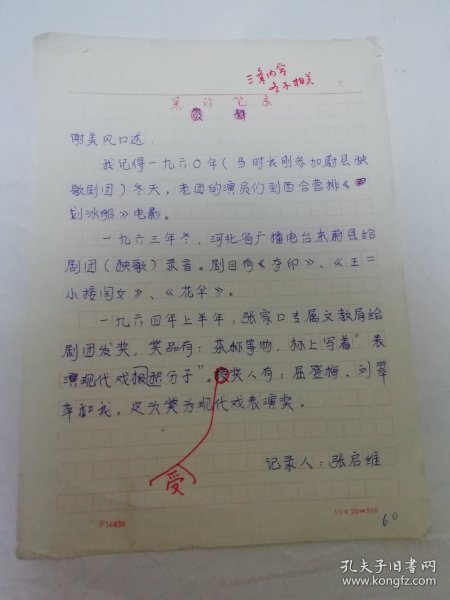 三条内容
各不相关
采访笔录
谢美凤口述:
我记得一九六〇年(当时我刚参加蔚县秧
歌剧团)冬天,老团的演员们到西合营排《
划冰船》电影。
一九六三年冬,河北省广播电台来蔚县给
剧团(秧歌)录音。剧目有《夺印》、《王二
小接闺女》、《花伞》。
一九六四年上半年,张家口专属文教局给
剧团发奖,奖品有:茶杯等物,杯上写着"表
演现代戏积极分子"。奖人有:屈登梅、刘翠
苹和我。定为奖为现代戏表演奖。
受
记录人:张启维
F16836
15×20=300
60
孔夫子旧书网
www.kongfz.com